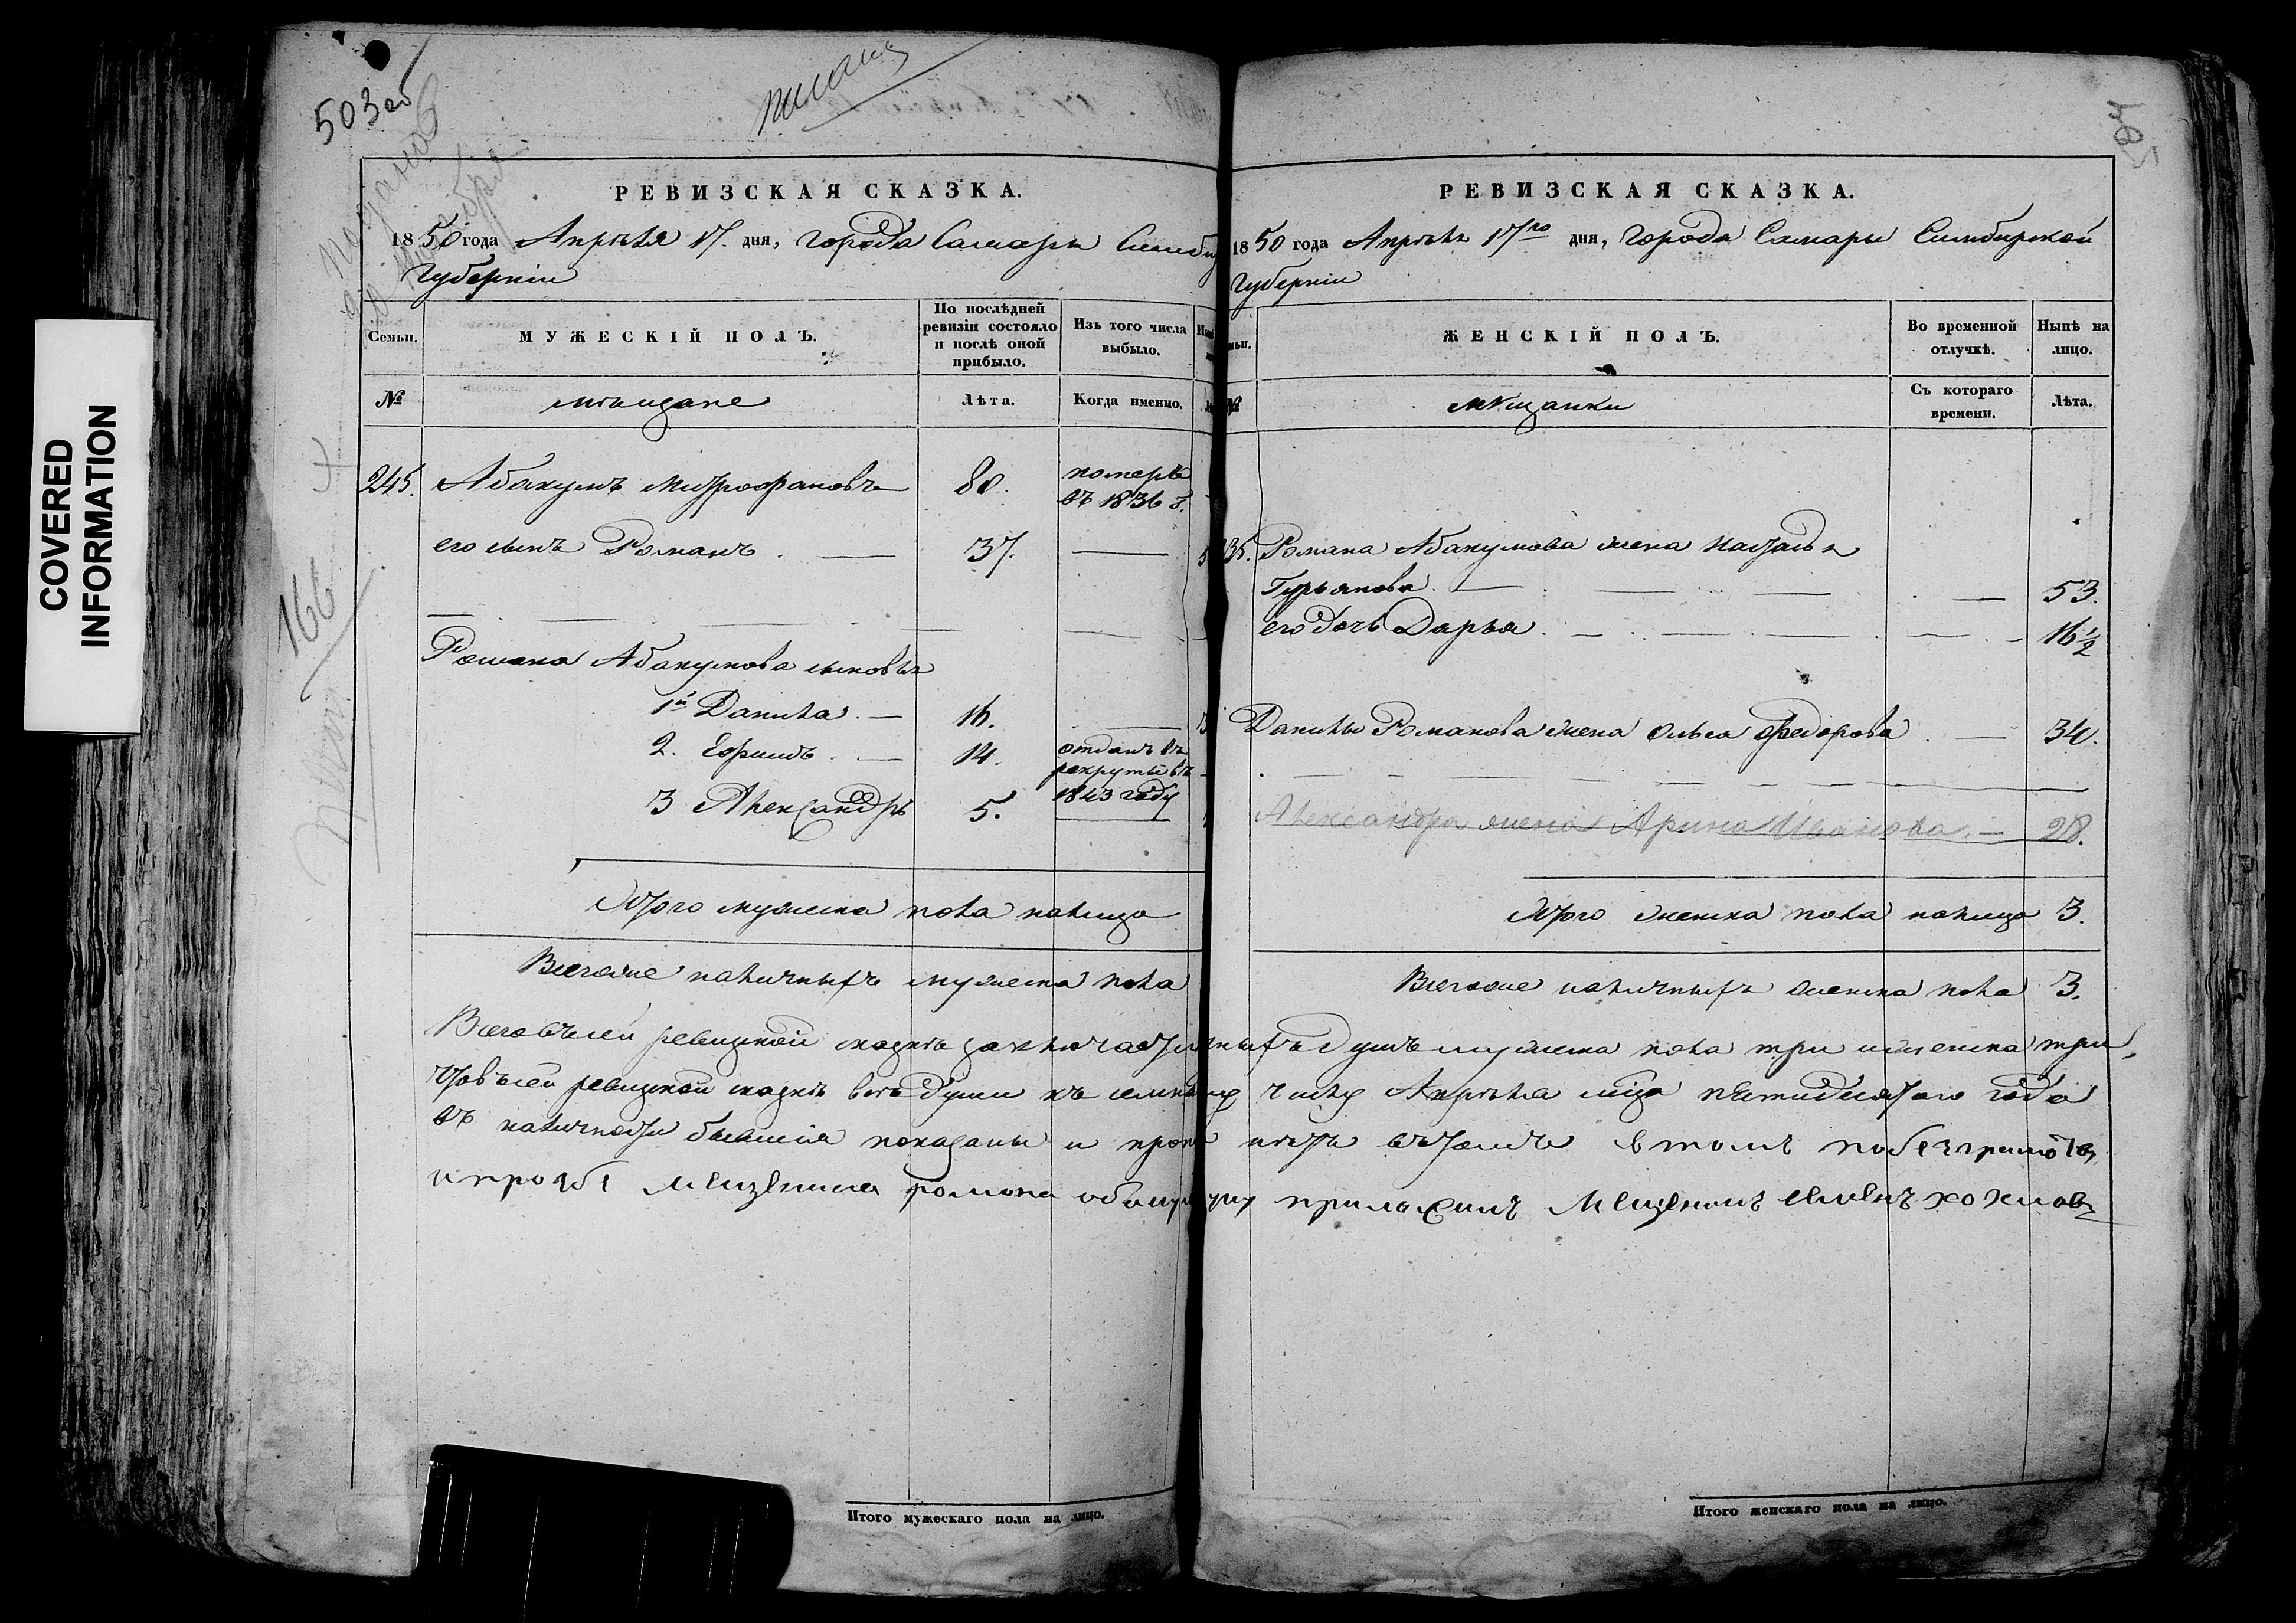 503 об
COVERED
INFORMATION
166
РЕВИЗСКАЯ СКАЗКА.
1850 года Апрѣля 17. дня, города Самары Симби
Губерніи
Семьи.
МУЖЕСКІЙ ПОЛЪ.
По послѣдней
ревизіи состояло
и послѣ оной
прибыло.
Изъ того числа
выбыло.
№
мѣщане
Лѣта.
Когда именно.
245. Абакумъ Митрофановъ 80. померъ
въ 1836 г.
его сынъ Романъ. 37.
Романа Абакумова сыновья
1й Данила. 16.
2. Ефимъ 14. отданъ въ
рекруты въ
1843 году
3 Александръ 5.
Итого мужеска пола налицо
Всего же наличныхъ мужеска пола
РЕВИЗСКАЯ СКАЗКА.
1850 года Апрѣля 17го дня, города Самары Симбирской
Губерніи
ЖЕНСКІЙ ПОЛЪ.
Во временной
отлучкѣ.
Нынѣ на
лицо.
№
мѣщанки
Съ котораго
времени.
Лѣта.
Романа Абакумова жена Наталья
Гурьянова. 53.
его дочь Дарья. 16 1/2
Данилы Романова жена Ольга Федорова 30.
Александра жена Арина Иванова. 28.
Итого женска пола налицо 3.
Всего же наличныхъ женска пола 3.
Всего въ сей ревизкой сказкѣ душъ мужеска пола три и женска три,
что въ сей ревизкой сказкѣ всѣ души къ числу Апрѣля мѣсяца пятидесятаго года
въ наличности бывшія показаны и нѣтъ въ томъ
мещенина романа мещенинъ
Итого мужескаго пола на лицо.
Итого женскаго пола на лицо.